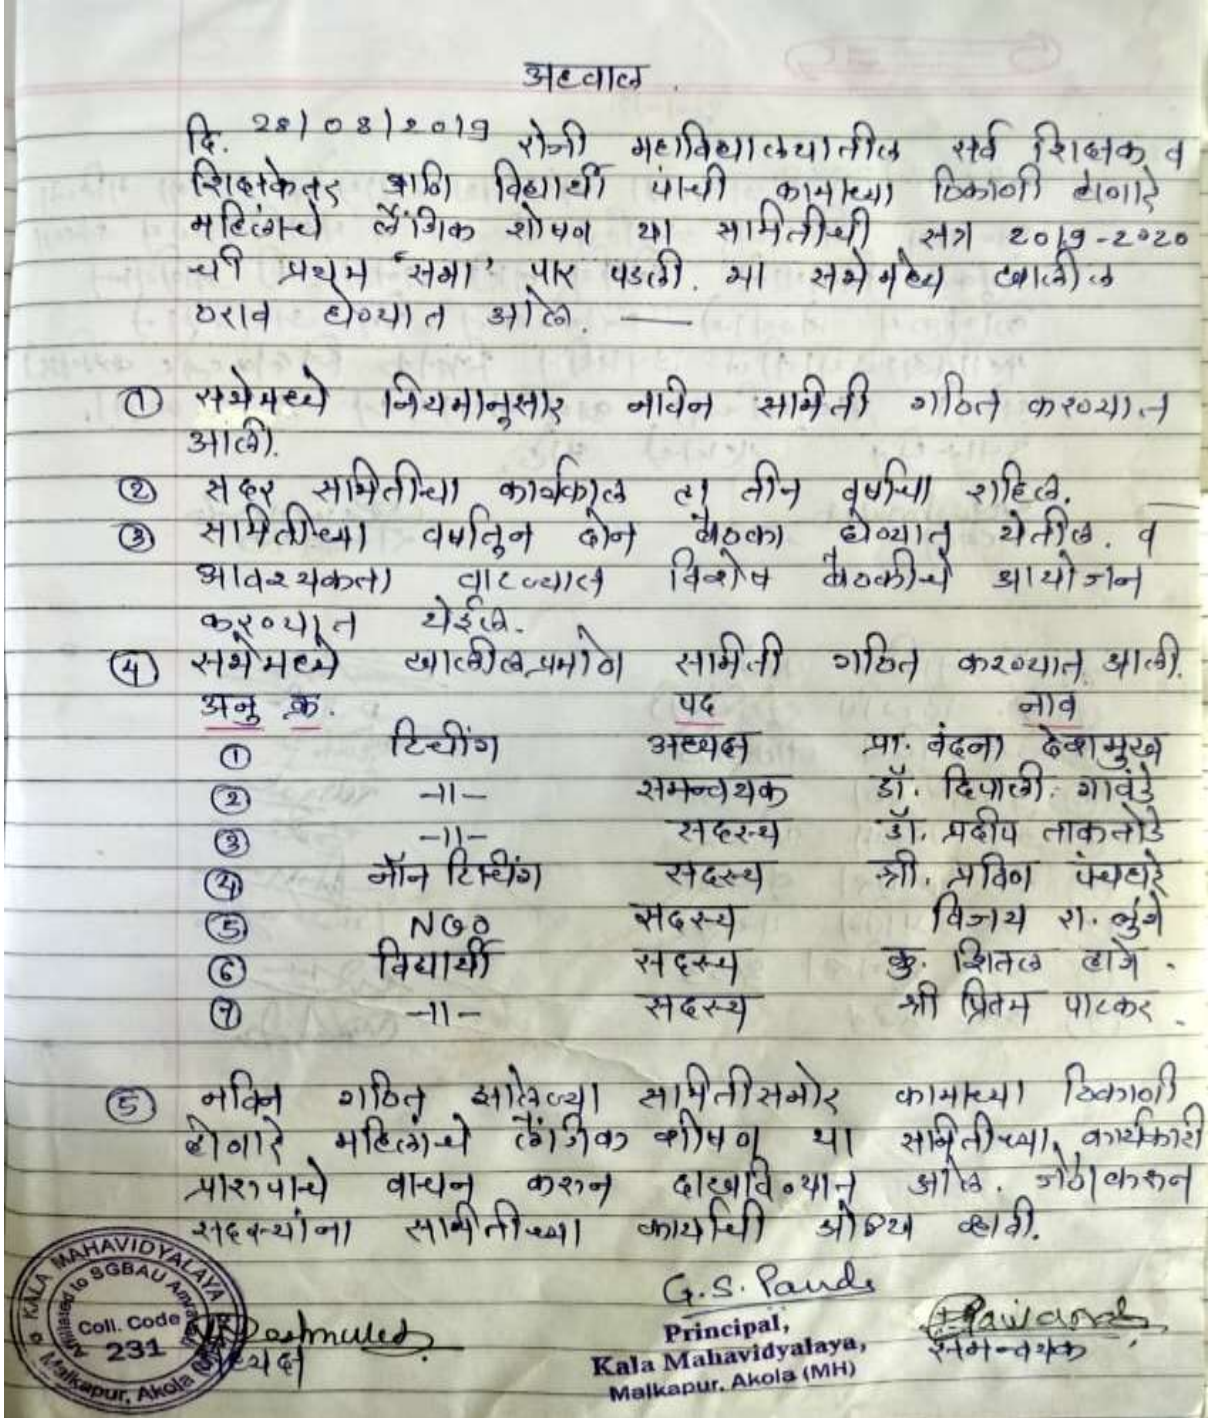 अहवाल.
दि. 28/08/2019 रोजी महाविद्यालयातील सर्व शिक्षक व
शिक्षकेतर आणि विद्यार्थी यांची कामाच्या ठिकाणी होणारे
महिलांचे लैंगिक शोषण या समितीची सत्र 2019-2020
ची प्रथम "सभा" पार पडली. या सभेमध्ये खालील
ठराव घेण्यात आले. —
① सभेमध्ये नियमानुसार नाविन समिती गठित करण्यात
आली.
② सदर समितीचा कार्यकाल हा तीन वर्षाचा राहिल.
③ समितीच्या वर्षातुन दोन बैठका घेण्यात येतील. व
आवश्यकता वाटल्यास विशेष बैठकीचे आयोजन
करण्यात येईल.
④ सभेमध्ये खालीलप्रमाणे समिती गठित करण्यात आली.
अनु क्र. पद नाव
① टिचींग अध्यक्ष प्रा. वंदना देशमुख
② -॥- समन्वयक डॉ. दिपाली. गावंडे
③ -॥- सदस्य डॉ. प्रदीप ताकतोडे
④ नॉन टिचींग सदस्य श्री. प्रविण पंचहारे
⑤ NGO सदस्य विजय रा. लुंगे
⑥ विद्यार्थी सदस्य कु. शितल हागे.
⑦ -॥- सदस्य श्री प्रितम पाटकर.
⑤ नविन गठित झालेल्या समितीसमोर कामाच्या ठिकाणी
होणारे महिलांचे लैंगिक शोषण या समितीच्या कार्यकारी
प्रारुपाचे वाचन करुन दाखविण्यात आले. जेणेकरुन
सदस्यांना समितीच्या कार्याची ओळख व्हावी.
KALA MAHAVIDYALAYA
Malkapur, Akola
Affiliated to SGBAU Amravati
Coll. Code
231
अध्यक्ष
Principal,
Kala Mahavidyalaya,
Malkapur, Akola (MH)
समन्वयक